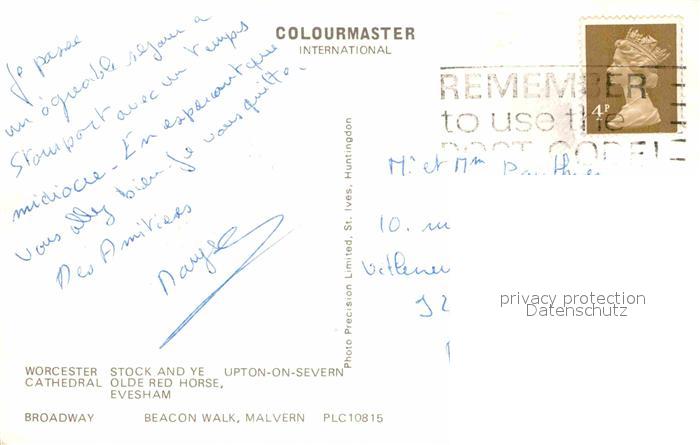 COLOURMASTER
INTERNATIONAL
Je passe
un agréable séjour à
Stourport avec un temps
médiocre - En espérant que
vous allez bien. Je vous quitte.
Des Amitiées
Maryse
REMEMBER
to use the
POST CODE!
4P
Mr et Mm
10. ru
92
privacy protection
Datenschutz
Photo Precision Limited, St. Ives, Huntingdon
WORCESTER STOCK AND YE UPTON-ON-SEVERN
CATHEDRAL OLDE RED HORSE,
EVESHAM
BROADWAY BEACON WALK, MALVERN PLC10815